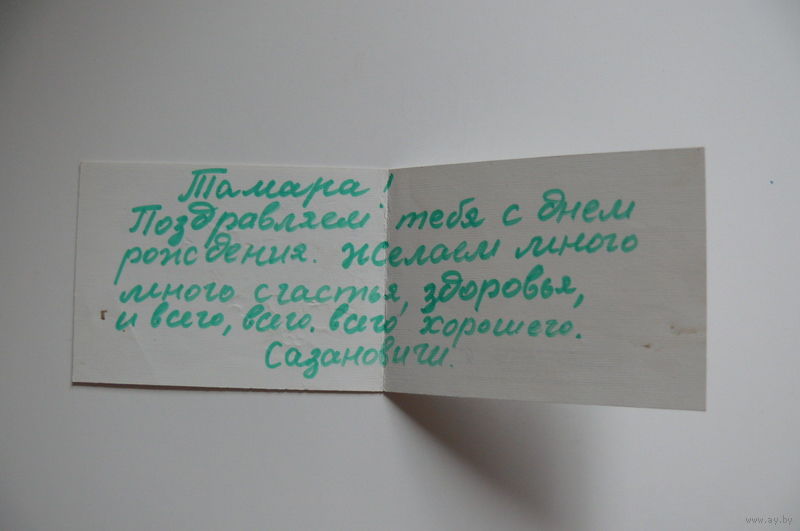 Тамара!
Поздравляем тебя с днем
рождения. Желаем много
много счастья, здоровья,
и всего, всего, всего хорошего.
Сазановичи.
www.ay.by